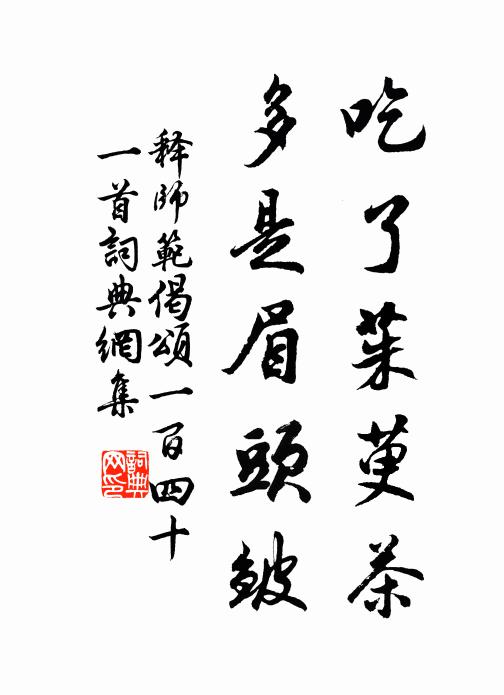 吃了茱萸茶
多是眉頭皺
释師範偈頌一百四十
一首詞典網集
詞典
网印